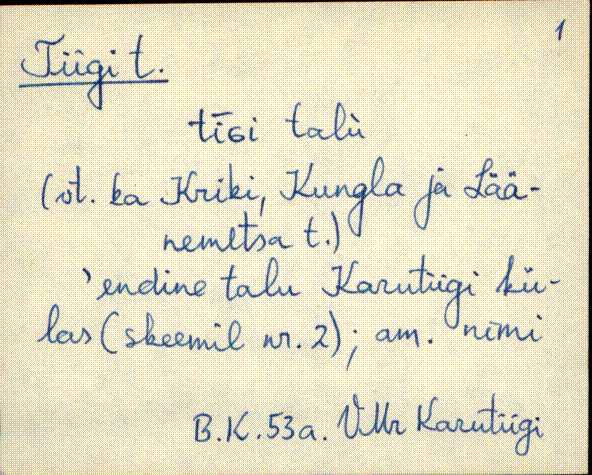 1
Tiigi t.
tīGi talù
(vt. ka Kriki, Kungla ja Lää-
nemetsa t.)
'endine talu Karutiigi kü-
las (skeemil nr. 2); am. nimi
B.K. 53a. VMr Karutiigi